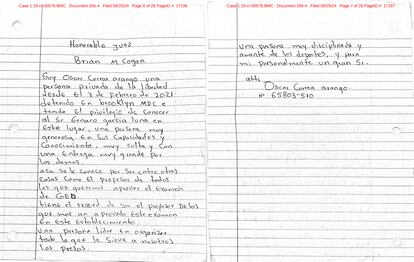 Case 1:19-cr-00576-BMC Document 266-4 Filed 09/25/24 Page 6 of 26 PageID #: 17196
Honorable juez
Brian M Cogan
Soy Oscar Correa arango una
persona privada de la libertad
desde el 3 de febrero de 2021
detenido en brooklyn MDC e
tenido El privilegio de Conocer
al Sr Genaro garcia luna en
Este lugar, una persona muy
generosa En Sus Capacidades y
Conocimiento, muy Culta y Con
una Entrega muy grande por
los demas.
aca se le conoce por ser entre otras
cosas Como el profesor de todos
los que queremos aprovar el Examen
de GED
tiene el record de Ser el profesor De los
que mas an aprovado Este examen
en Este establecimiento.
una persona lider en organizar
todo lo que le Sirve a nosotros
los presos.
Case 1:19-cr-00576-BMC Document 266-4 Filed 09/25/24 Page 7 of 26 PageID #: 17197
una persona muy disciplinada y
amante de los deportes, y para
mi personalmente un gran Sr.
att:
Oscar Correa arango.
Nº 65803-510